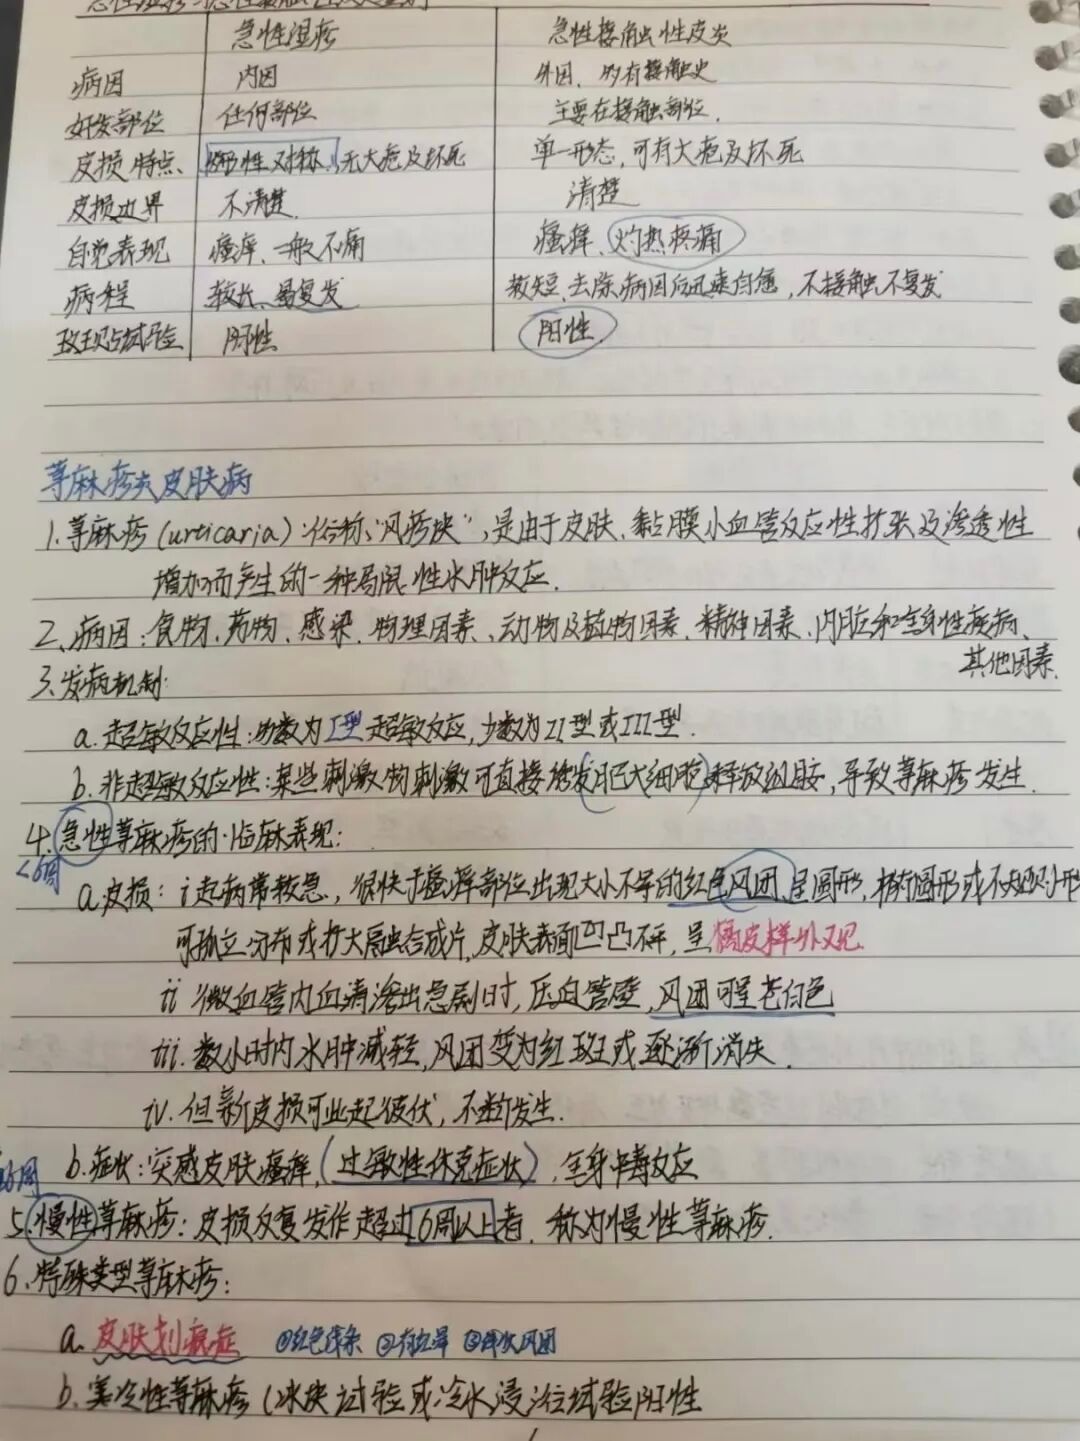 急性湿疹 急性接触性皮炎
病因 内因 外因、多有接触史
好发部位 任何部位 主要在接触部位.
皮损特点、 多形性、对称、无大疱及坏死 单一形态,可有大疱及坏死
皮损边界 不清楚. 清楚
自觉表现 瘙痒、一般不痛 瘙痒、灼热疼痛
病程 较长、易复发 较短、去除病因后迅速自愈,不接触不复发
斑贴试验 阴性 阳性.
荨麻疹类皮肤病
1.荨麻疹(urticaria):俗称“风疹块”,是由于皮肤、黏膜小血管反应性扩张及渗透性
增加而产生的一种局限性水肿反应.
2、病因:食物、药物、感染、物理因素、动物及植物因素、精神因素、内脏和全身性疾病、
其他因素.
3.发病机制:
a.超敏反应性:多数为I型超敏反应,少数为II型或III型.
b.非超敏反应性:某些刺激物刺激可直接诱发(肥大细胞)释放组胺,导致荨麻疹发生.
4.急性荨麻疹的临床表现:
<6周
a.皮损:i起病常较急,很快于瘙痒部位出现大小不等的红色风团,呈圆形、椭圆形或不规则形
可孤立分布或扩大融合成片,皮肤表面凹凸不平,呈橘皮样外观
ii 微血管内血清渗出急剧时,压迫管壁,风团可呈苍白色
iii.数小时内水肿减轻,风团变为红斑或逐渐消失.
iv.但新皮损可此起彼伏,不断发生.
b.症状:突感皮肤瘙痒,(过敏性休克症状),全身中毒反应
6周
5.慢性荨麻疹:皮损反复发作超过6周以上者,称为慢性荨麻疹.
6.特殊类型荨麻疹:
a.皮肤划痕症 ①红色线条 ②有红晕 ③风团
b.寒冷性荨麻疹(冰块试验或冷水浸浴试验阳性